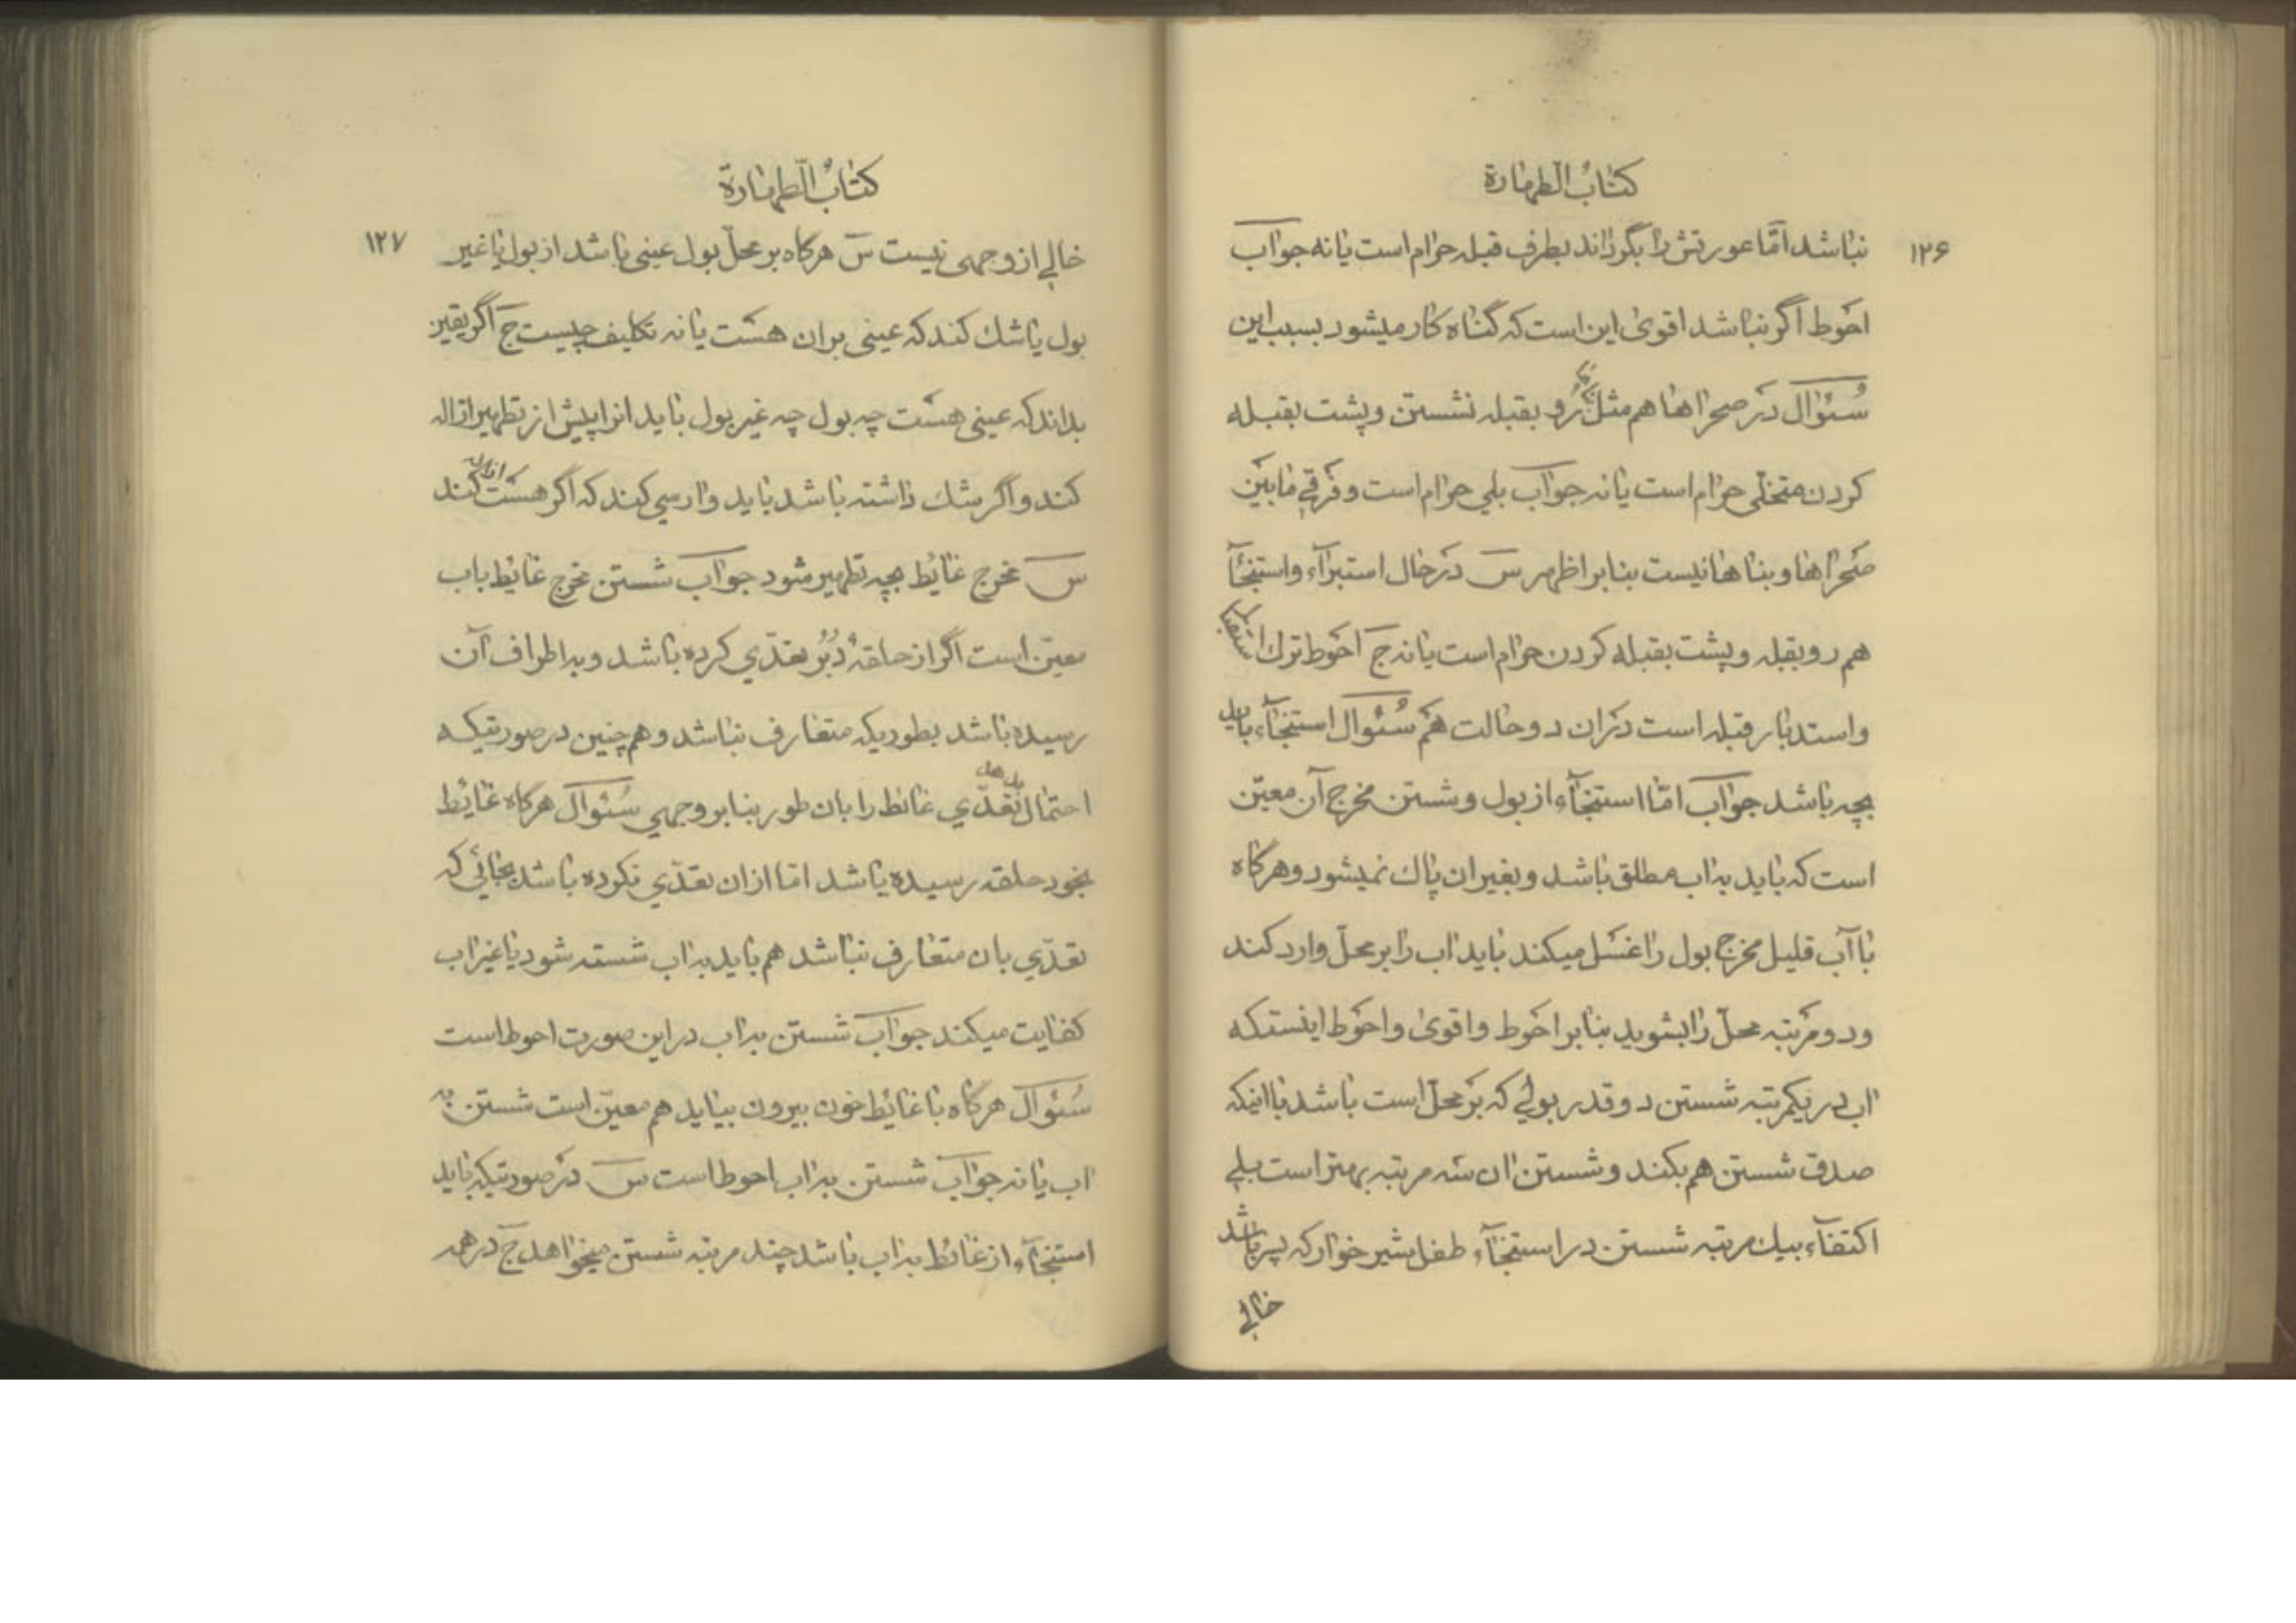 كتابُ الطهارة
۱۲۶
نباشد امّا عورتش را بگرداند بطرف قبله حرام است یا نه جواب
احوط اگر نباشد اقوی این است که گناه کار میشود بسبب این
سُئوال در صحراها هم مثل رو بقبله نشستن و پشت بقبله
کردن متخلّی حرام است یا نه جواب بلی حرام است و فرقی مابین
صحراها و بناها نیست بنابر اظهر س در حال استبرآء و استنجآء
هم رو بقبله و پشت بقبله کردن حرام است یا نه ج احوط ترك استقبال
و استدبار قبله است در ان دو حالت هم سُئوال استنجآء باید
بچه باشد جواب امّا استنجآء از بول و شستن مخرج آن معیّن
است که باید به اب مطلق باشد و بغیر ان پاك نمیشود و هرگاه
با آب قلیل مخرج بول را غسل میکند باید اب را بر محلّ وارد کند
و دو مرتبه محلّ را بشوید بنابر احوط و اقوی و احوط اینستکه
اب در یکمرتبه شستن دو قدر بولی که بر محلّ است باشد با اینکه
صدق شستن هم بکند و شستن ان سه مرتبه بهتر است بلی
اکتفآء بیك مرتبه شستن در استنجآء طفل شیر خوار که پسر باشد
خالی
كتابُ الطّهارة
۱۲۷
خالی از وجهی نیست س هرگاه بر محلّ بول عینی باشد از بول یا غیر
بول یا شك کند که عینی بر ان هست یا نه تکلیف چیست ج اگر یقین
بداند که عینی هست چه بول چه غیر بول باید انرا پیش از تطهیر ازاله
کند و اگر شك داشته باشد باید وارسی کند که اگر هست ازاله کند
س مخرج غایٔط بچه تطهیر میشود جواب شستن مخرج غایٔط باب
معیّن است اگر از حلقهٔ دُبُر تعدّی کرده باشد و به اطراف آن
رسیده باشد بطوریکه متعارف نباشد و هم چنین در صورتیکه
احتمال بدهد تعدّی غائط را بان طور بنابر وجهی سُئوال هرگاه غایٔط
بخود حلقه رسیده باشد امّا از ان تعدّی نکرده باشد بجائی که
تعدّی بان متعارف نباشد هم باید به اب شسته شود یا غیر اب
کفایت میکند جواب شستن به اب در این صورت احوط است
سُئوال هرگاه با غایٔط خون بیرون بیاید هم معیّن است شستن به
اب یا نه جواب شستن به اب احوط است س در صورتیکه باید
استنجآء از غائط به اب باشد چند مرتبه شستن میخواهد ج در همه